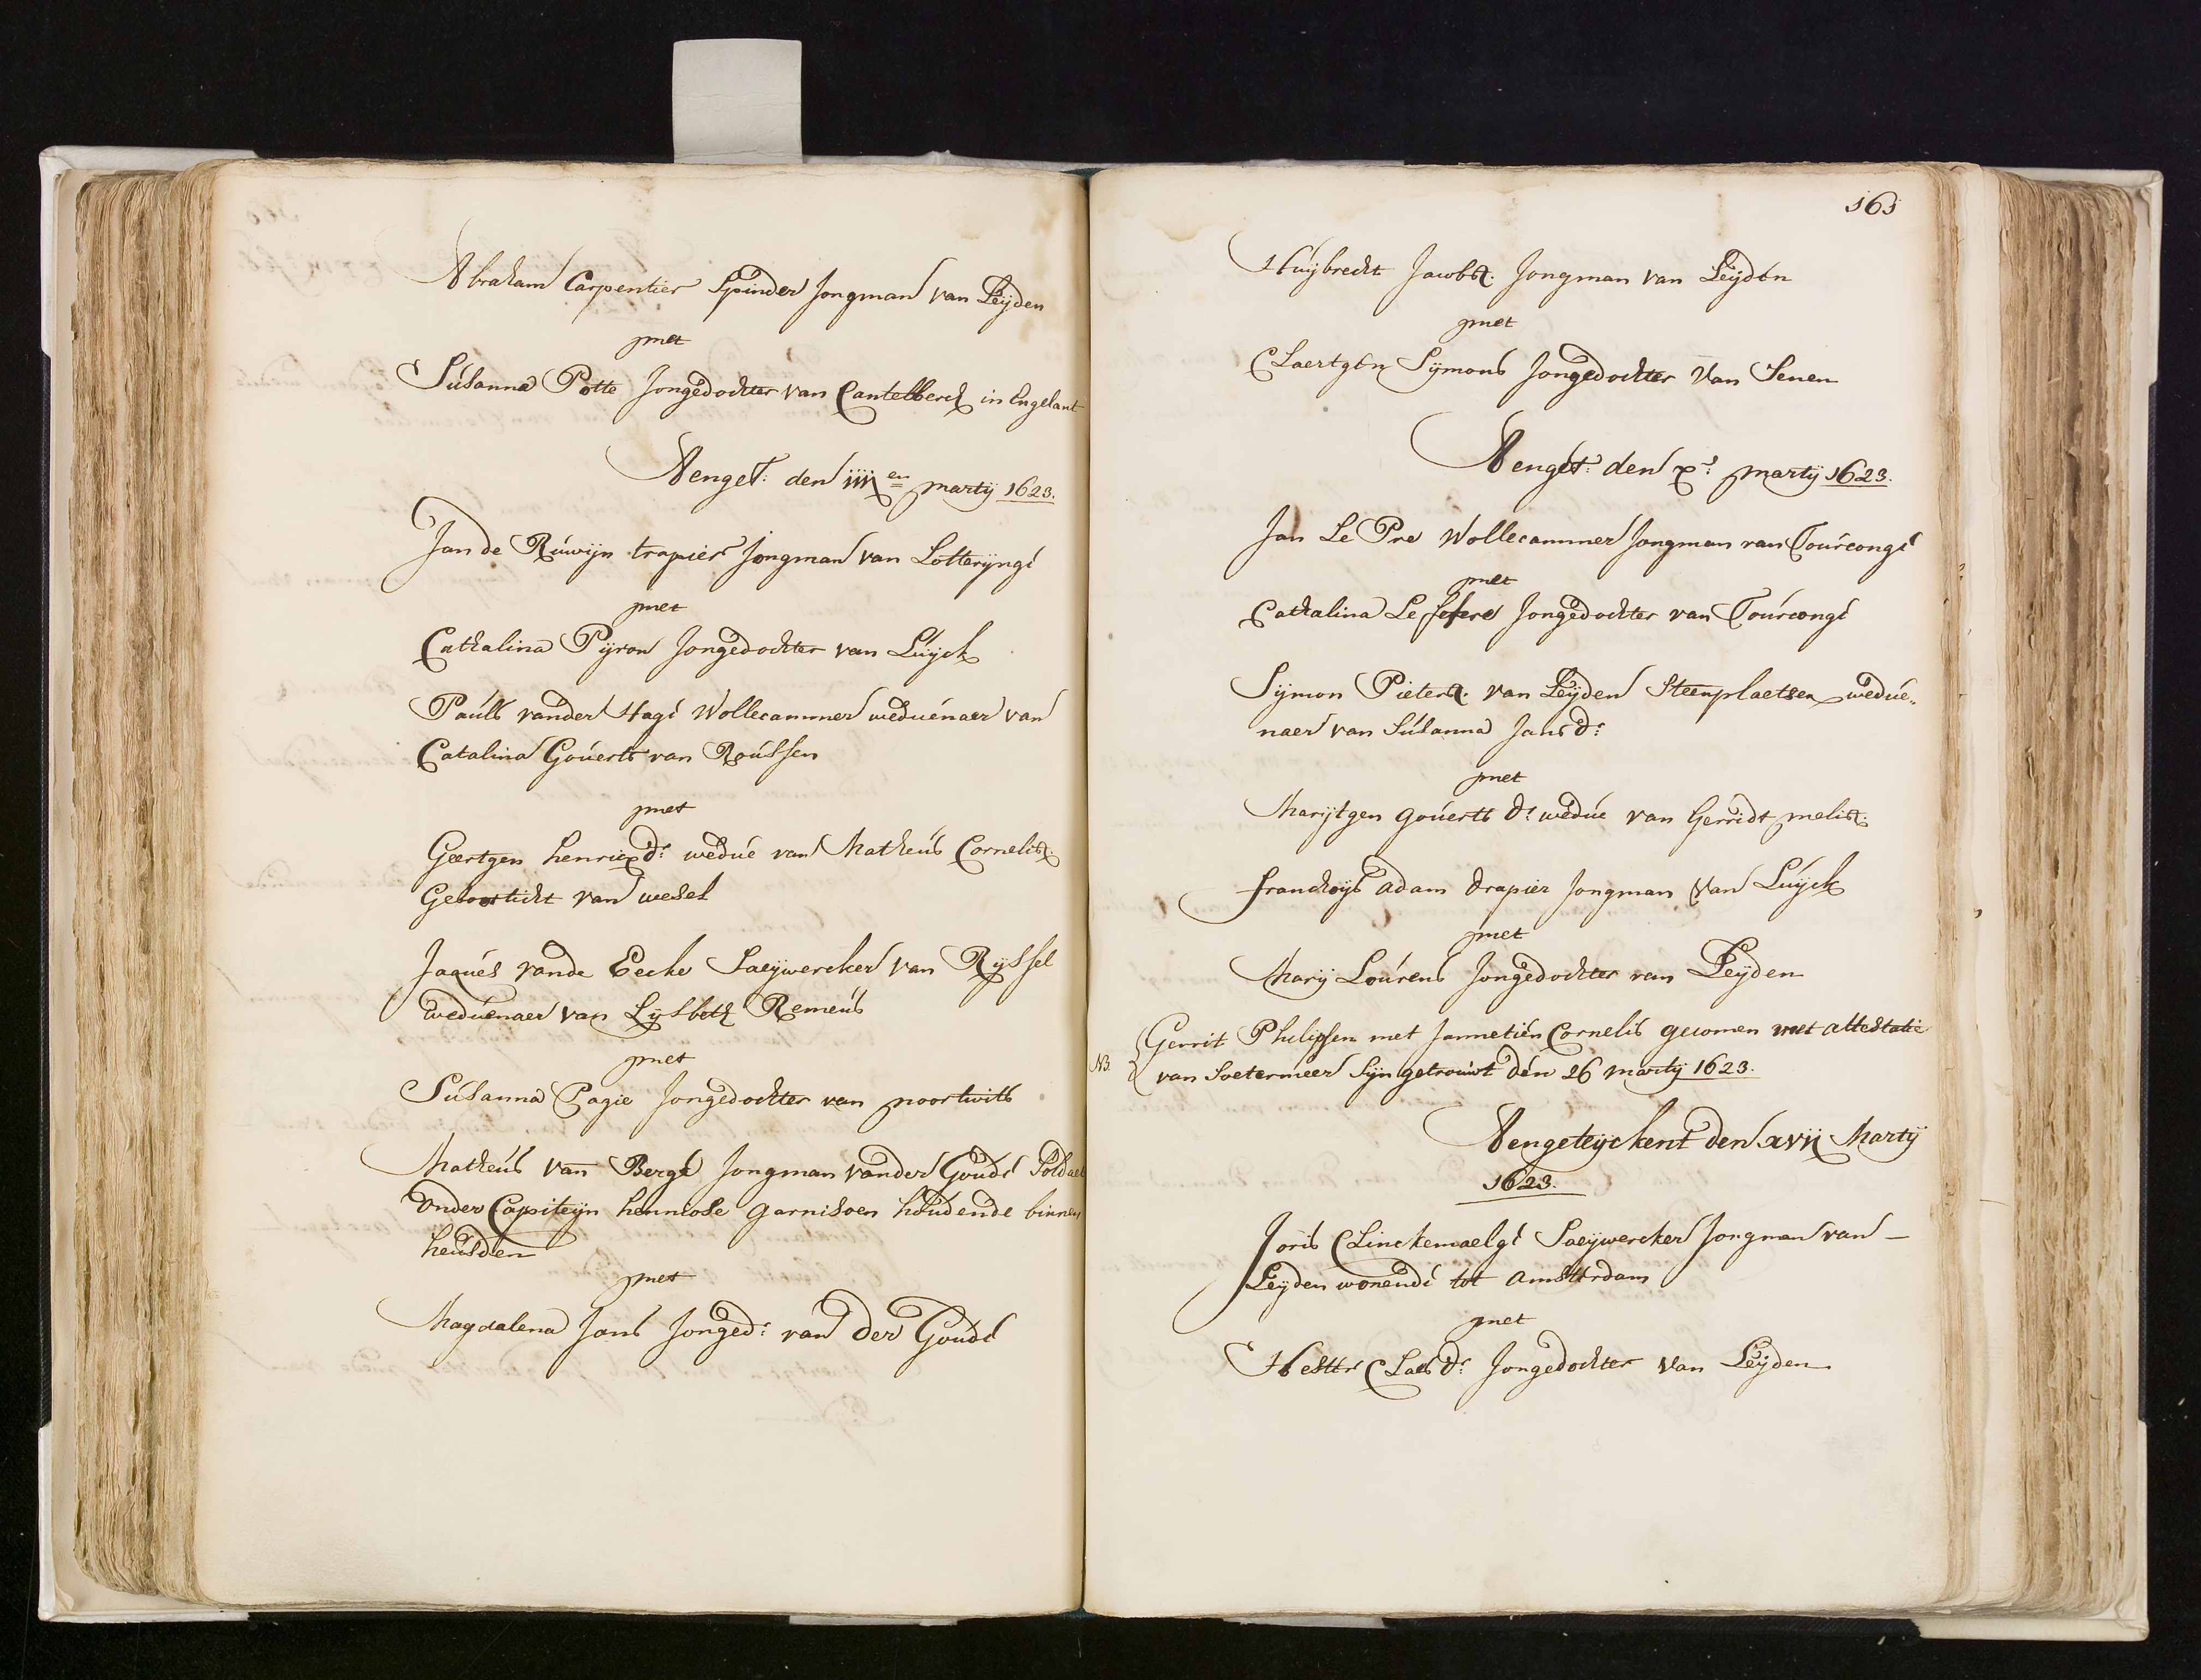 Abraham Carpentier Spinder Jongman van Leijden
met
Susanna Potte Jongedochter van Cantelberch in Engelant
Aenget: den iiij en martij 1623.
Jan de Ruwijn trapier Jongman van Lotterynge
met
Cathalina Pijron Jongedochter van Luijck
Pauls vander Hage Wollecammer weduenaer van
Catalina Gouerts van Roussen
met
Geertgen henricxdr: wedue van Matheus Cornelisz.
Geboorticht van wesel
Jaques vande Eecke Saeijwercker van Ryssel
weduenaer van Lysbeth Remeus
met
Susanna Pagie Jongedochter van noortwits
Matheus van Berge Jongman vander Goude Soldaet
onder Capiteijn henniose garnisoen houdende binnen
heusden
met
Magdalena Jans Jonged: van der Goude
161
Huijbrecht Jacobsz. Jongman van Leijden
met
Claertgen Sijmons Jongedochter van Senen
Aenget: den x: martij 1623.
Jan Le Pre Wollecammer Jongman van Tourconge
met
Cathalina Le fefere Jongedochter van Tourconge
Sijmon Pietersz. van Leijden Steenplaetser wedue„
naer van Susanna Jans dr:
met
Marijtgen gouerts dr wedue van Gerridt melisz.
franchoijs adam drapier Jongman van Luijck
met
Marij Lourens Jongedochter van Leijden
NB. Gerrit Philipsen met Jannetien Cornelis gecomen met attestatie
van Soetermeer Sijn getrouwt den 26 martij 1623.
Aengeteijckent den xvij Martij
1623.
Joris Clinckemaelge Saeijwercker Jongman van
Leijden wonende tot Amsterdam
met
Hester Claes dr: Jongedochter van Leijden